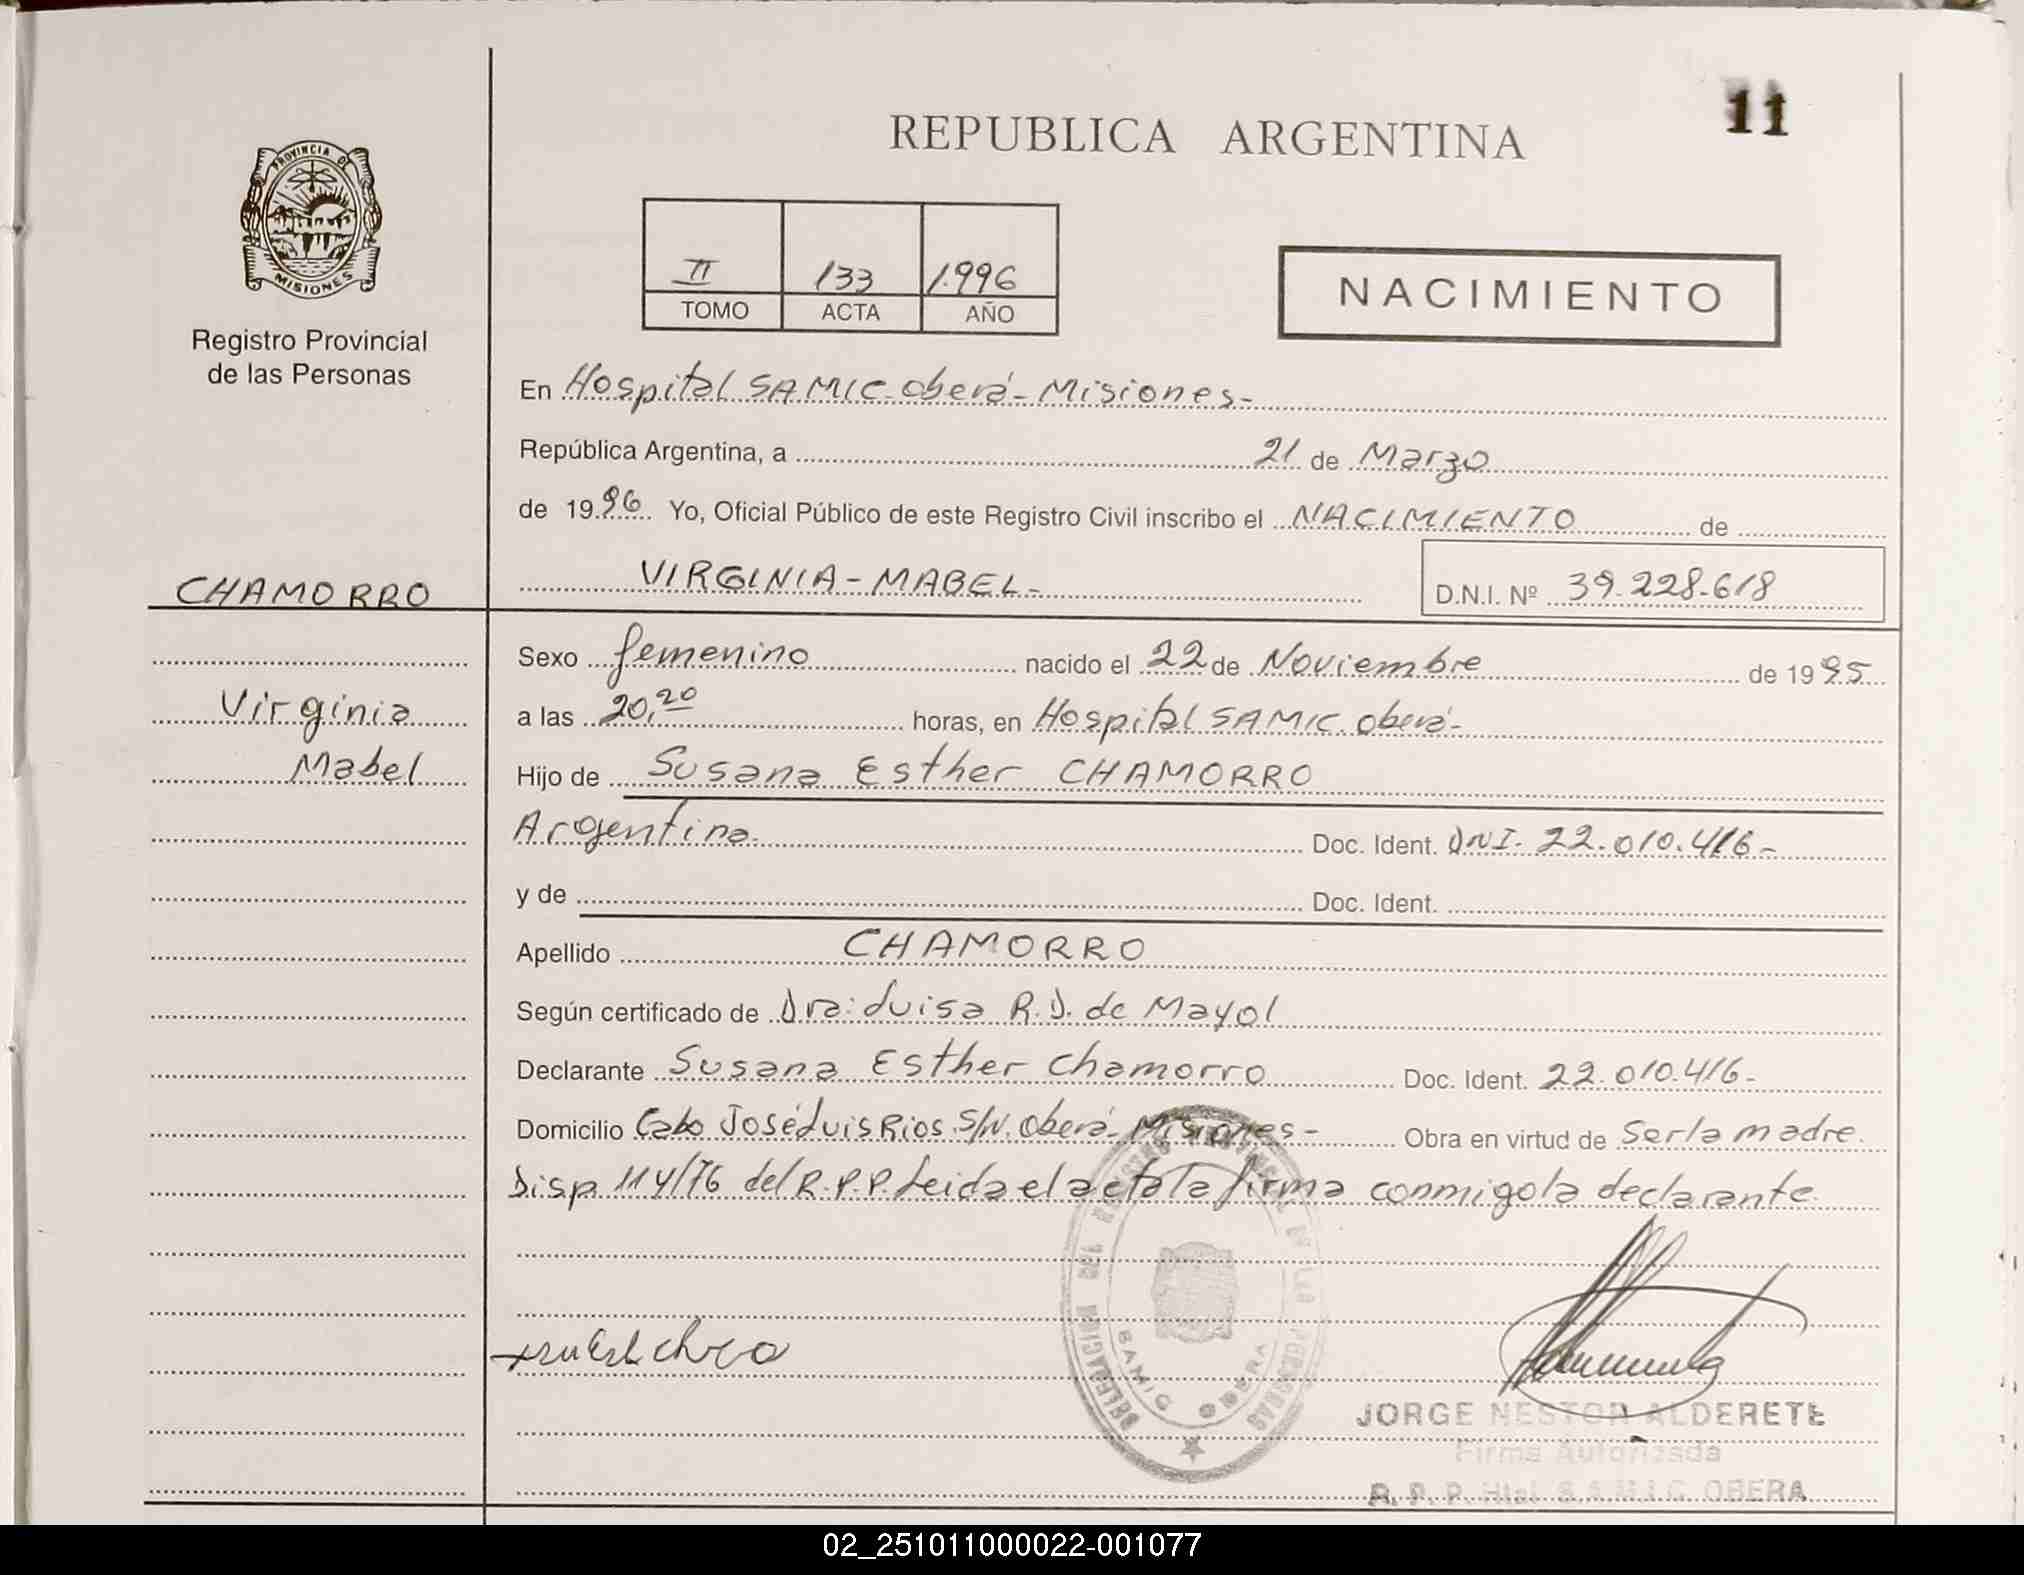 11
REPUBLICA ARGENTINA
PROVINCIA DE
MISIONES
Registro Provincial
de las Personas
II 133 1.996
TOMO ACTA AÑO
NACIMIENTO
En Hospital SAMIC Oberá - Misiones -
República Argentina, a 21 de Marzo
de 1996 Yo, Oficial Público de este Registro Civil inscribo el NACIMIENTO de
CHAMORRO
VIRGINIA - MABEL - D.N.I. Nº 39.228.618
Sexo femenino nacido el 22 de Noviembre de 1995
Virginia
a las 20,20 horas, en Hospital SAMIC. Oberá -
Mabel
Hijo de Susana Esther CHAMORRO
Argentina. Doc. Ident. DNI. 22.010.416 -
y de Doc. Ident.
Apellido CHAMORRO
Según certificado de Dra: Luisa R. D. de Mayol
Declarante Susana Esther Chamorro Doc. Ident. 22.010.416 -
Domicilio Cabo José Luis Rios S/N. Oberá - Misiones - Obra en virtud de Ser la madre.
Disp. 114/76 del R.P.P. Leida el acta la firma conmigo la declarante.
SAMIC OBERA
JORGE NESTOR ALDERETE
Firma Autorizada
R. P. P. Htal. S.A.M.I.C. OBERA
02_251011000022-001077